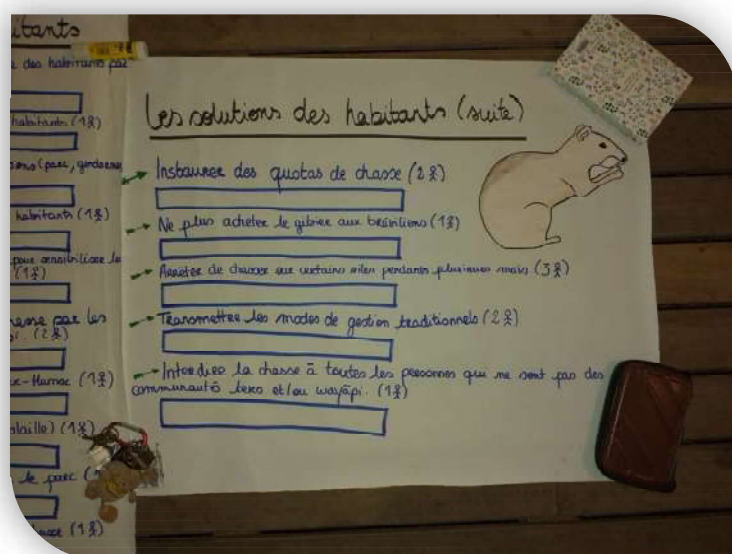 itants
des habitants par
habitants (1 )
(parc, gendarme
habitants (1 )
pour sensibiliser le
(1 )
par les
(2 )
(1 )
(1 )
le parc (
(1 )
Les solutions des habitants (suite)
Instaurer des quotas de chasse (2 )
Ne plus acheter le gibier aux brésiliens (1 )
Arrêter de chasser sur certains sites pendants plusieurs mois (3 )
Transmettre les modes de gestion traditionnels (2 )
Interdire la chasse à toutes les personnes qui ne sont pas des
communautés teko et/ou wayãpi. (1 )